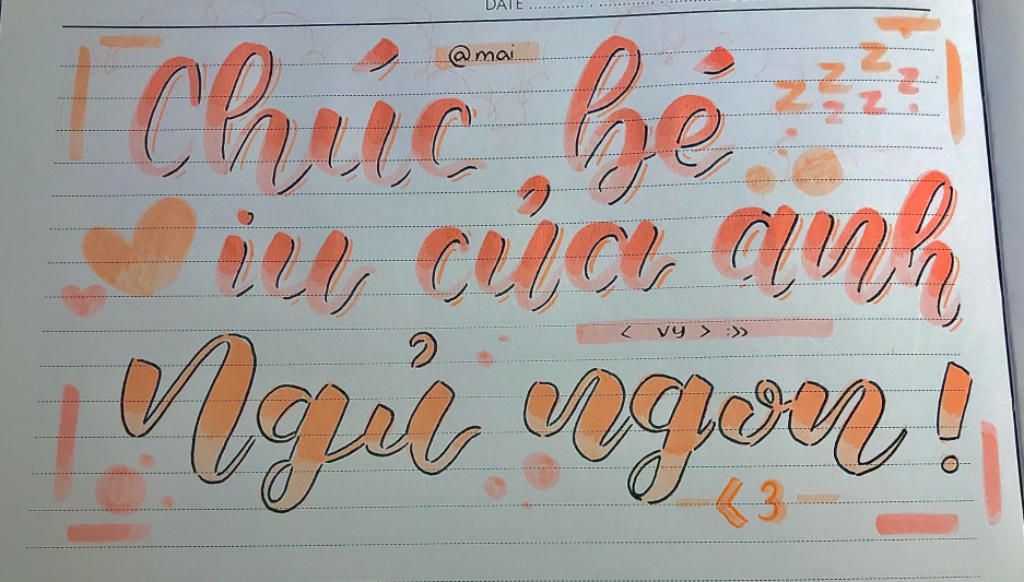 DATE
@mai
Chúc bé
z z z z z z
iu của anh
< vy > :»
Ngủ ngon !
<3